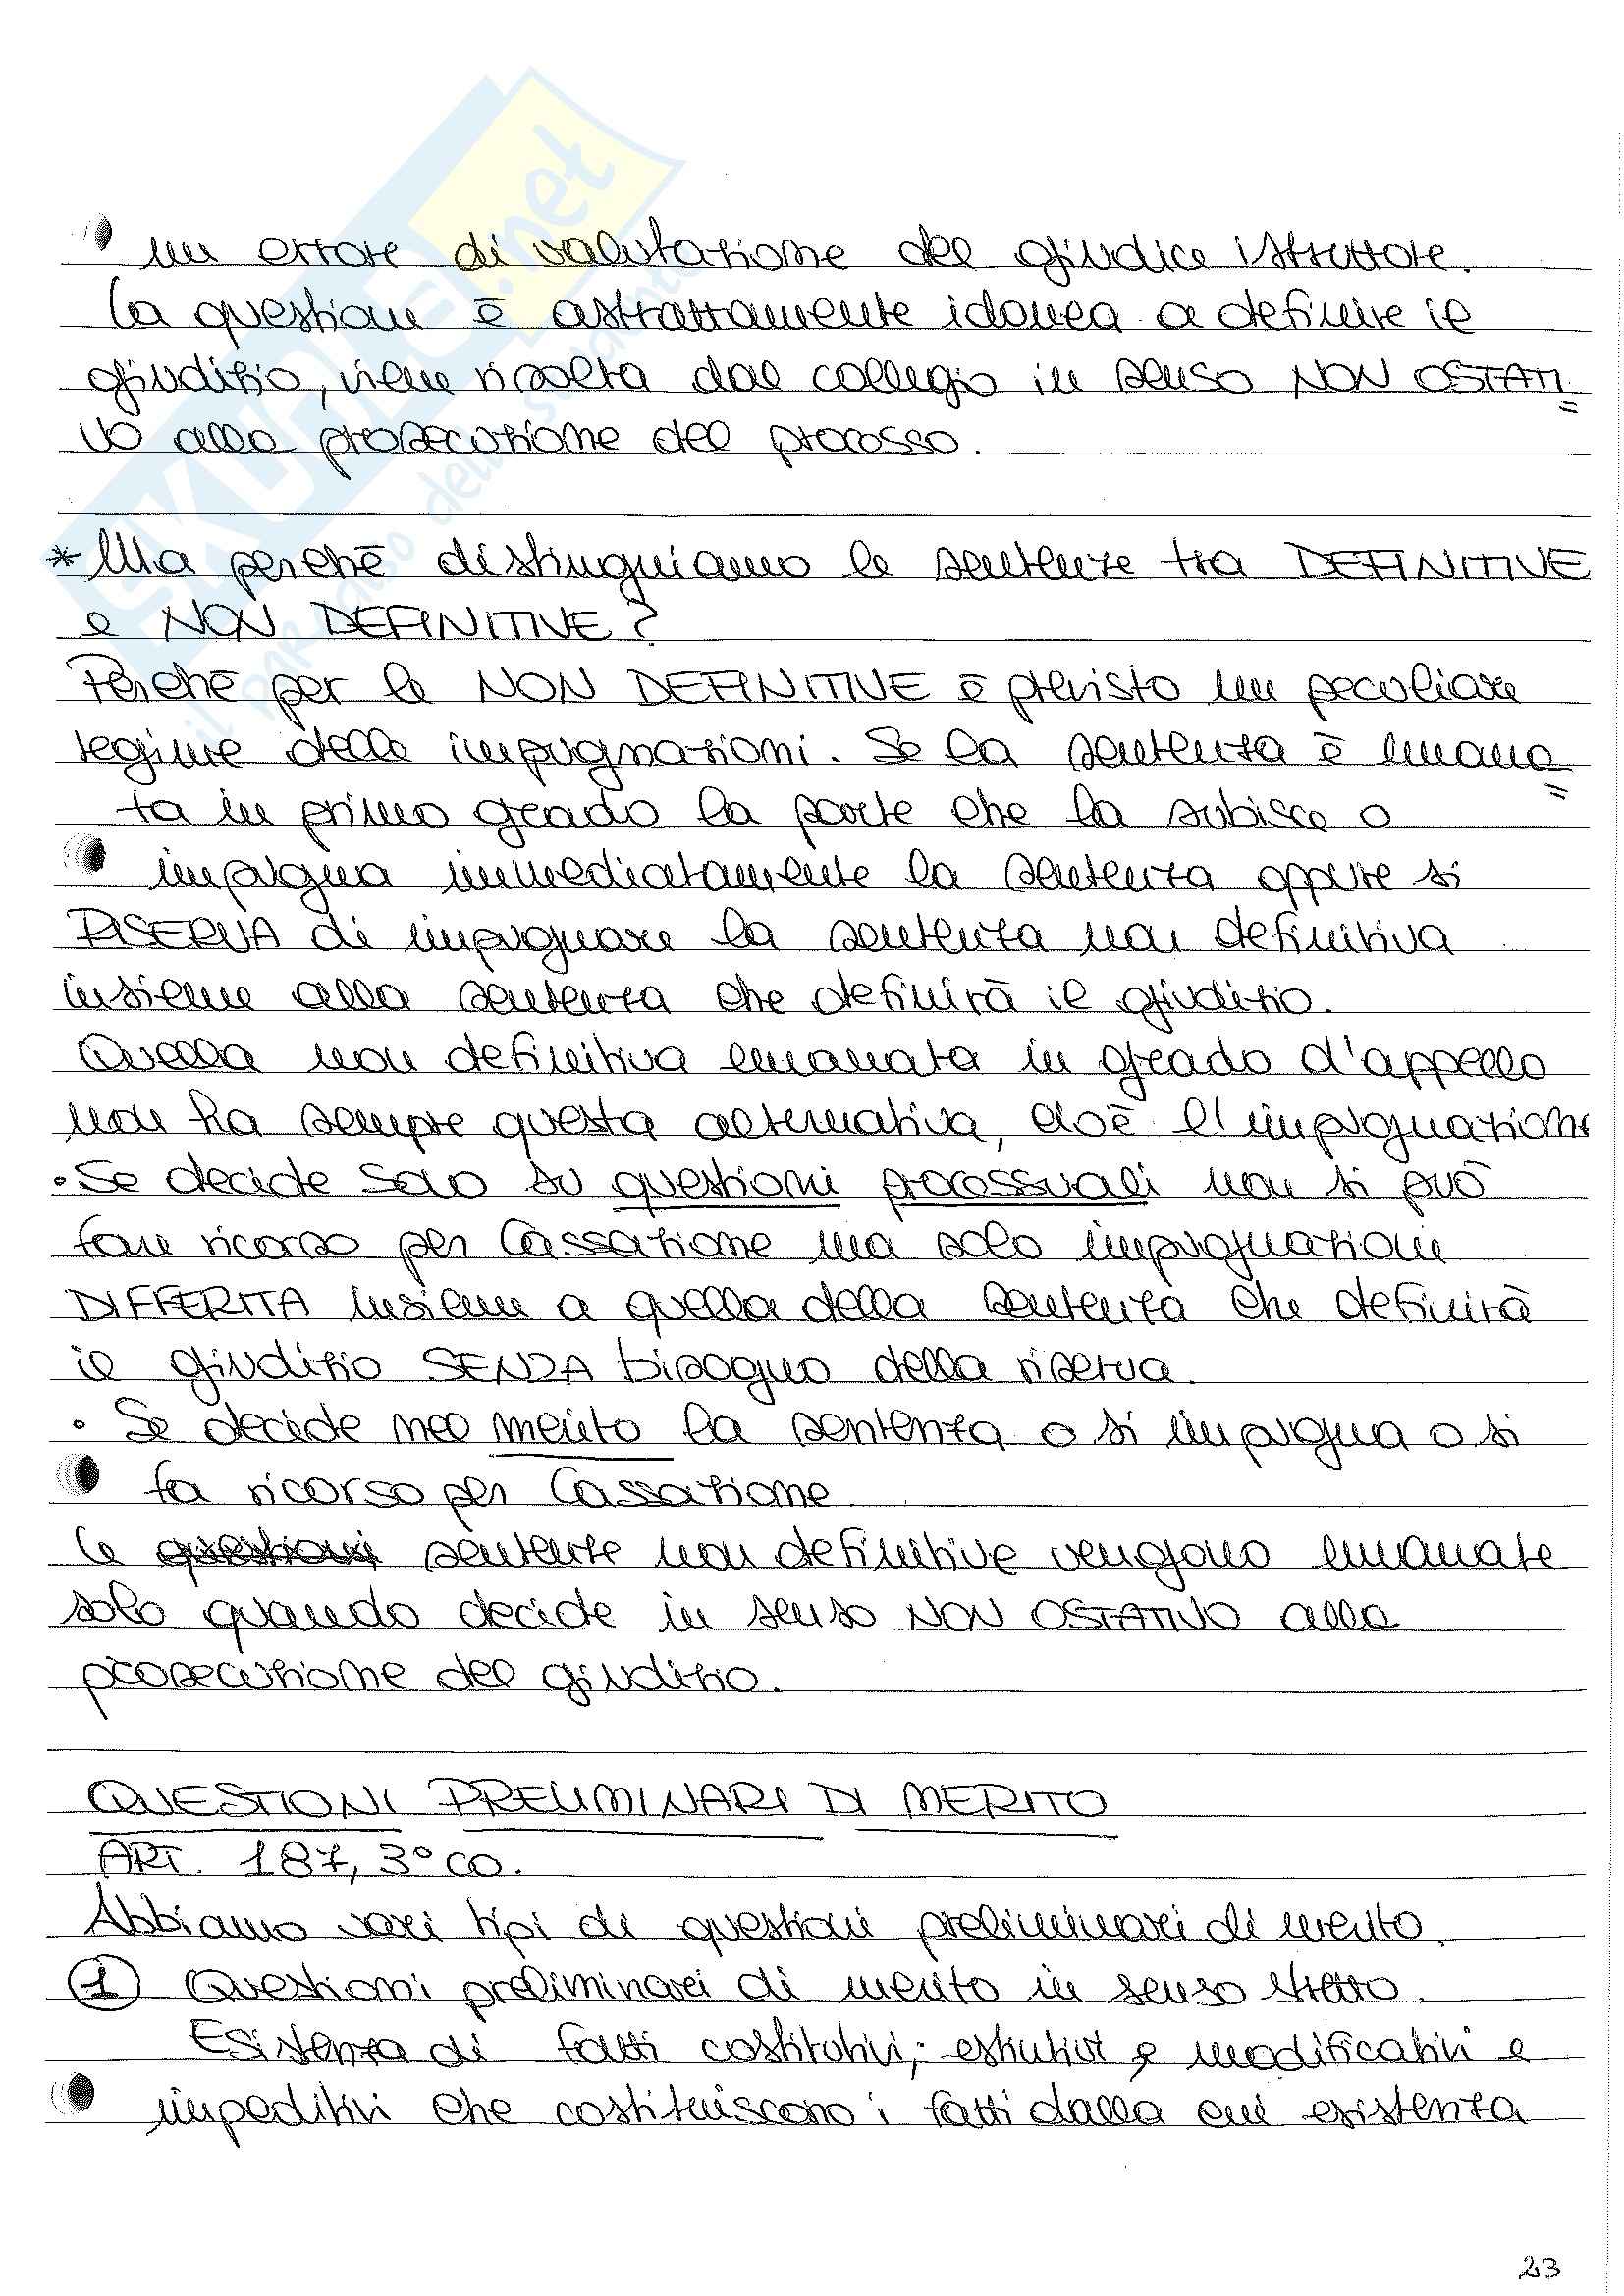 un errore di valutazione del giudice istruttore.
la questione è astrattamente idonea a definire il
giudizio, viene risolta dal collegio in senso NON OSTATI=
VO alla prosecuzione del processo.
* Ma perchè distinguiamo le sentenze tra DEFINITIVE
e NON DEFINITIVE?
Perchè per le NON DEFINITIVE è previsto un peculiare
regime delle impugnazioni. Se la sentenza è emana=
ta in primo grado la parte che la subisce o
impugna immediatamente la sentenza oppure si
RISERVA di impugnare la sentenza non definitiva
insieme alla sentenza che definirà il giudizio.
Quella non definitiva emanata in grado d'appello
non ha sempre questa alternativa, cioè l'impugnazione
• Se decide solo su questioni processuali non si può
fare ricorso per Cassazione ma solo impugnazione
DIFFERITA insieme a quella della sentenza che definirà
il giudizio SENZA bisogno della riserva.
• Se decide nel merito la sentenza o si impugna o si
fa ricorso per Cassazione
le questioni sentenze non definitive vengono emanate
solo quando decide in senso NON OSTATIVO alla
prosecuzione del giudizio.
QUESTIONI PRELIMINARI DI MERITO
ART. 187, 3° CO.
Abbiamo vari tipi di questioni preliminari di merito.
1 Questioni preliminari di merito in senso stretto.
Esistenza di fatti costitutivi, estintivi e modificativi e
impeditivi che costituiscono i fatti dalla cui esistenza
23